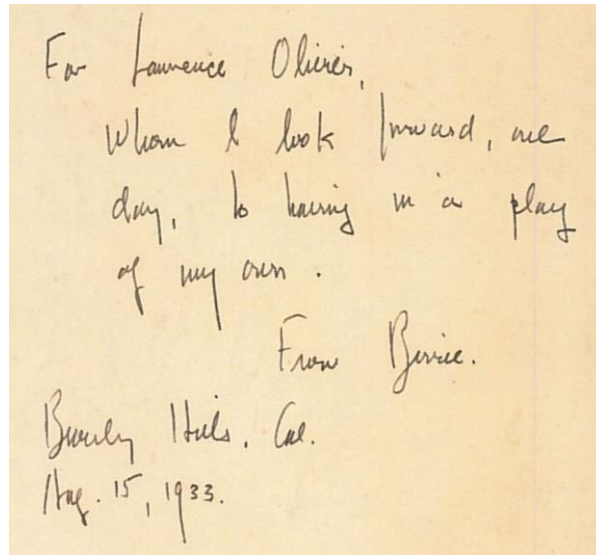 For Laurence Olivier,
Whom I look forward, one
day, to having in a play
of my own.
From Berrie.
Beverly Hills. Cal.
Aug. 15, 1933.